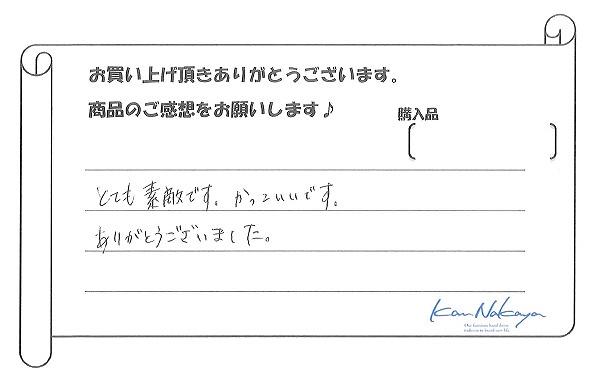 お買い上げ頂きありがとうございます。
商品のご感想をお願いします♪
購入品
とても素敵です。かっこいいです。
ありがとうございました。
Kan Nakaya